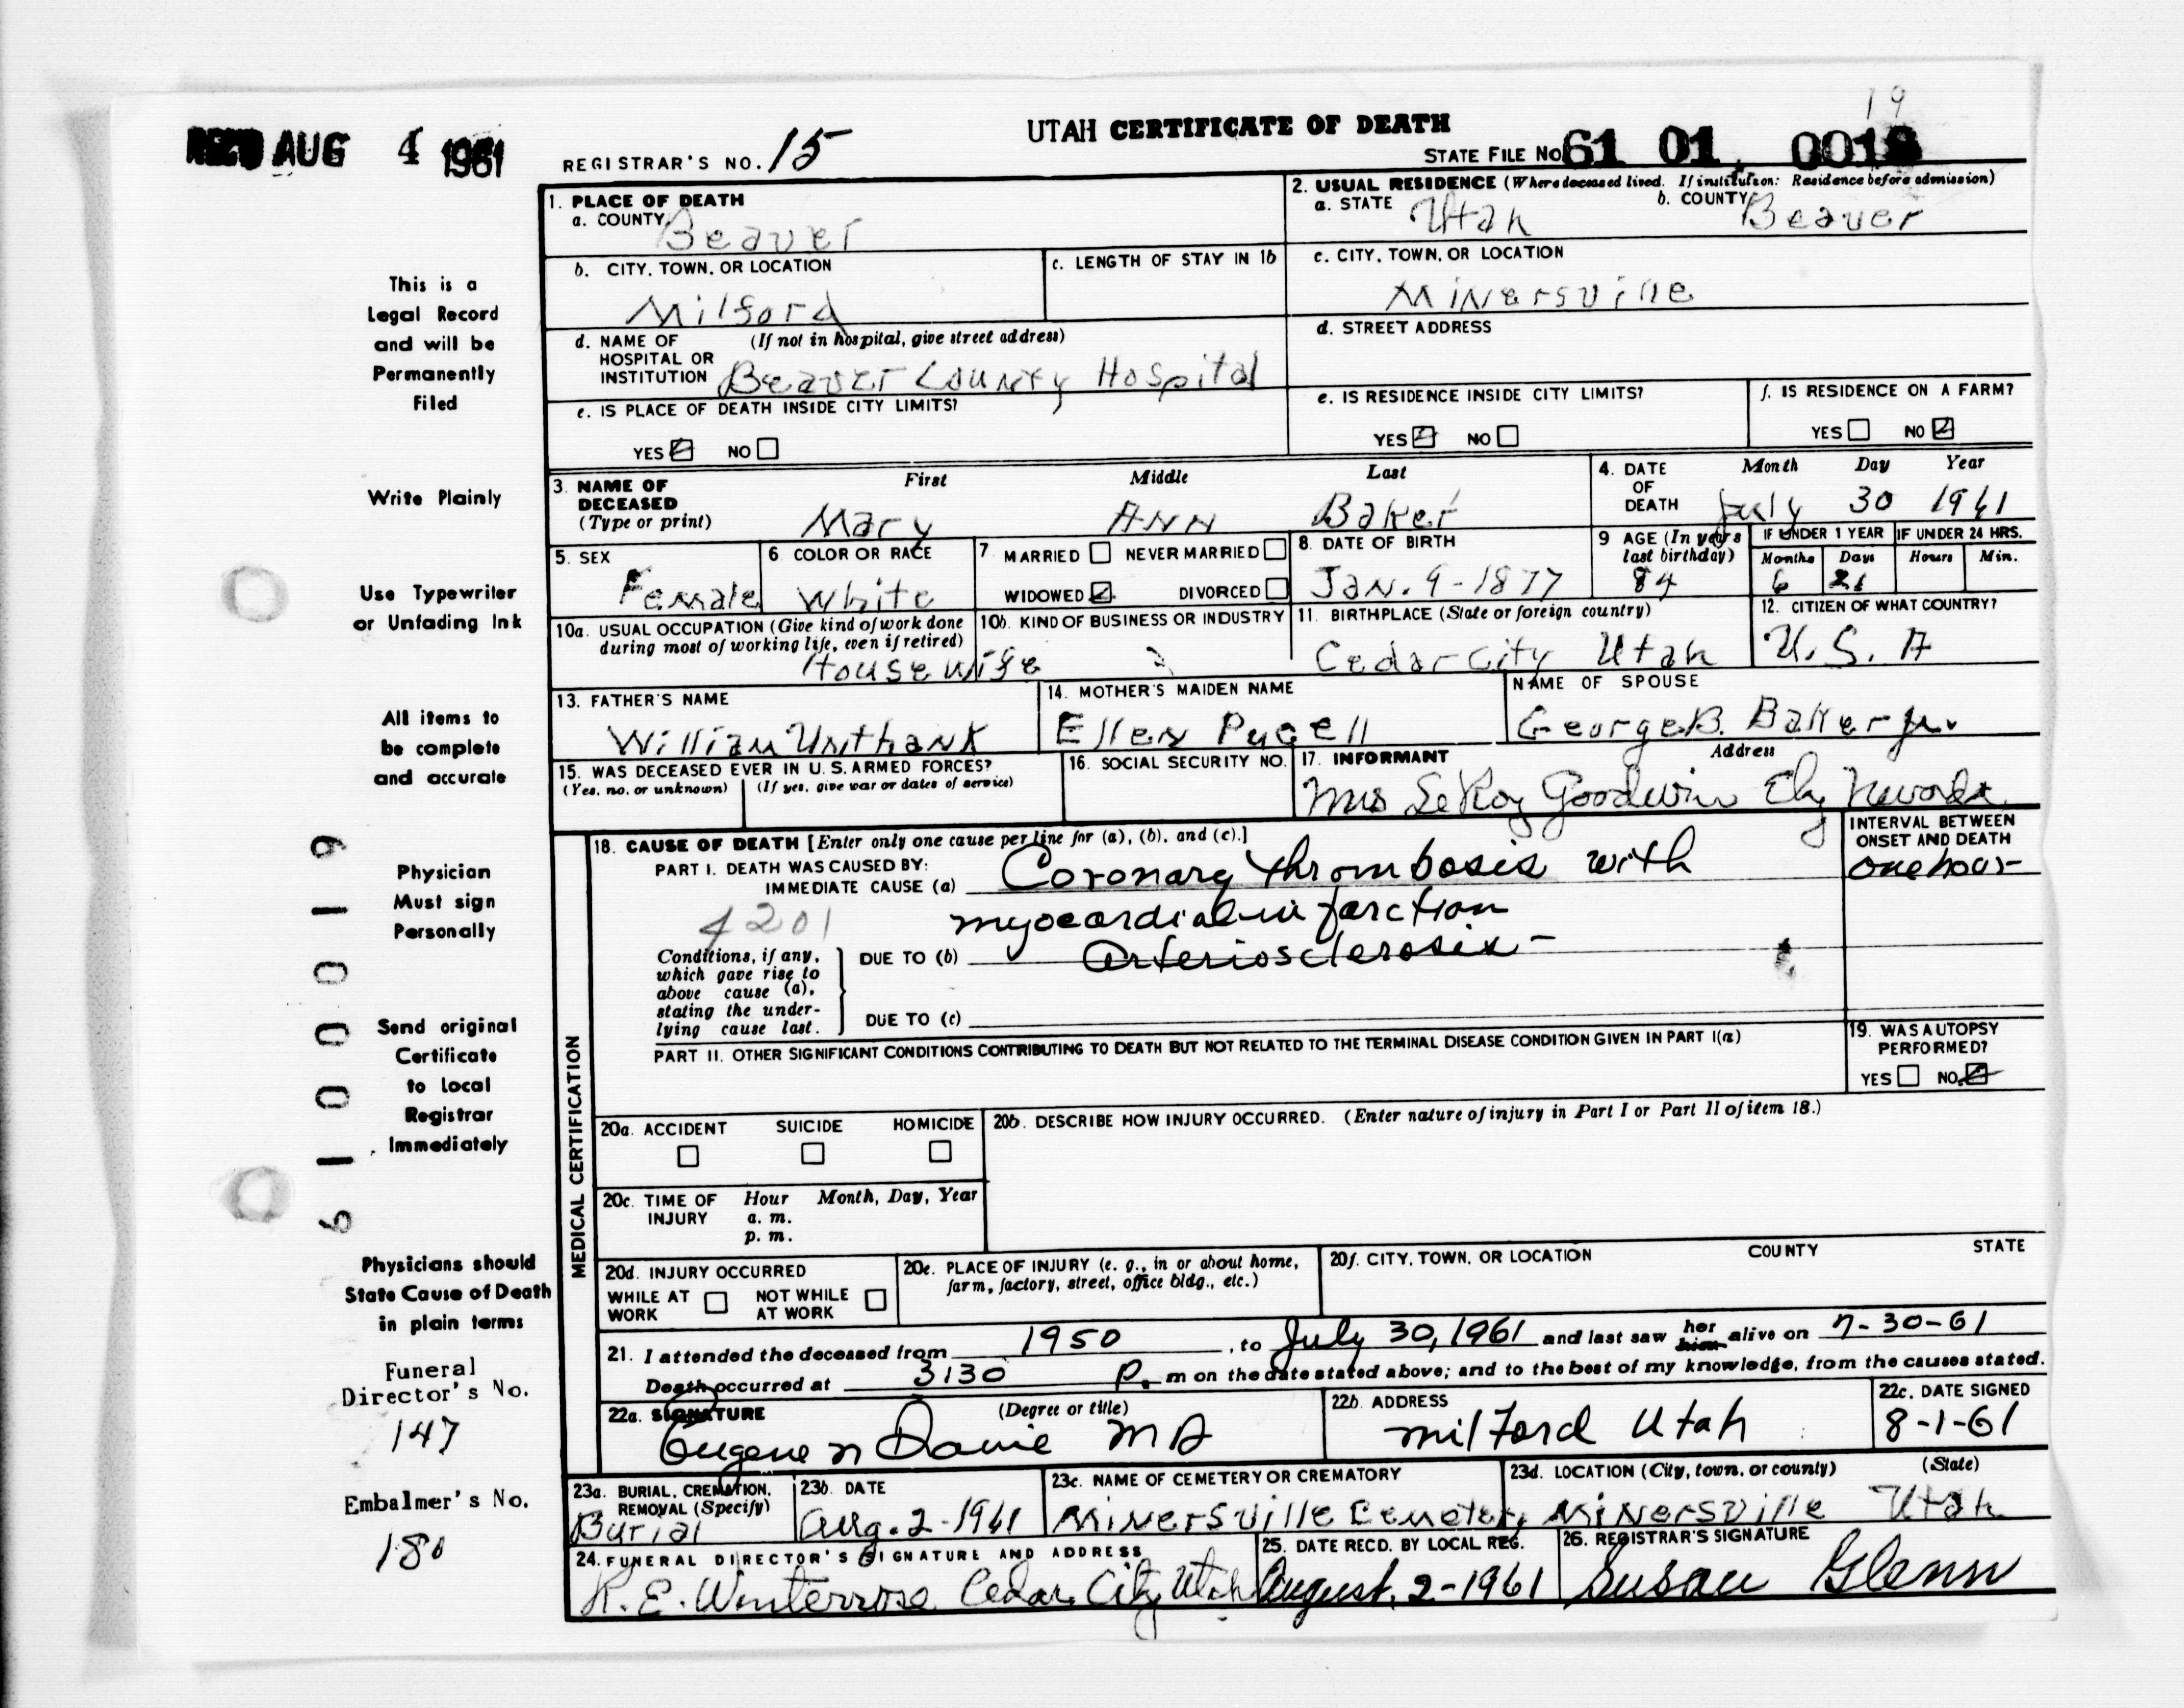 19
UTAH CERTIFICATE OF DEATH
REC'D AUG 4 1961
REGISTRAR'S NO. 15
STATE FILE NO. 61 01 0018
1. PLACE OF DEATH
a. COUNTY Beaver
2. USUAL RESIDENCE (Where deceased lived. If institution: Residence before admission)
a. STATE Utah b. COUNTY Beaver
b. CITY, TOWN, OR LOCATION Milford
c. LENGTH OF STAY IN 1b
c. CITY, TOWN, OR LOCATION Minersville
d. NAME OF HOSPITAL OR INSTITUTION (If not in hospital, give street address) Beaver County Hospital
d. STREET ADDRESS
e. IS PLACE OF DEATH INSIDE CITY LIMITS?
YES ☑ NO ☐
e. IS RESIDENCE INSIDE CITY LIMITS?
YES ☑ NO ☐
f. IS RESIDENCE ON A FARM?
YES ☐ NO ☑
3. NAME OF DECEASED (Type or print)
First Middle Last
Mary Ann Baker
4. DATE OF DEATH Month Day Year
July 30 1961
5. SEX Female
6 COLOR OR RACE White
7 MARRIED ☐ NEVER MARRIED ☐
WIDOWED ☑ DIVORCED ☐
8. DATE OF BIRTH Jan. 9-1877
9 AGE (In years last birthday) 84
IF UNDER 1 YEAR Months 6 Days 21
IF UNDER 24 HRS. Hours Min.
10a. USUAL OCCUPATION (Give kind of work done during most of working life, even if retired) Housewife
10b. KIND OF BUSINESS OR INDUSTRY
11. BIRTHPLACE (State or foreign country) Cedar City Utah
12. CITIZEN OF WHAT COUNTRY? U.S.A
13. FATHER'S NAME William Unthank
14. MOTHER'S MAIDEN NAME Ellen Pucell
NAME OF SPOUSE George B. Baker Jr.
15. WAS DECEASED EVER IN U.S. ARMED FORCES?
(Yes, no, or unknown) (If yes, give war or dates of service)
16. SOCIAL SECURITY NO.
17. INFORMANT Address
Mrs LeRoy Goodwin Ely Nevada
MEDICAL CERTIFICATION
18. CAUSE OF DEATH [Enter only one cause per line for (a), (b), and (c).]
INTERVAL BETWEEN ONSET AND DEATH
PART I. DEATH WAS CAUSED BY:
IMMEDIATE CAUSE (a) Coronary thrombosis with
one hour
4201
myocardial infarction
Conditions, if any, which gave rise to above cause (a), stating the underlying cause last.
DUE TO (b) Arteriosclerosis -
DUE TO (c)
PART II. OTHER SIGNIFICANT CONDITIONS CONTRIBUTING TO DEATH BUT NOT RELATED TO THE TERMINAL DISEASE CONDITION GIVEN IN PART I(a)
19. WAS AUTOPSY PERFORMED?
YES ☐ NO ☑
20a. ACCIDENT SUICIDE HOMICIDE
☐ ☐ ☐
20b. DESCRIBE HOW INJURY OCCURRED. (Enter nature of injury in Part I or Part II of item 18.)
20c. TIME OF INJURY Hour Month, Day, Year
a. m.
p. m.
20d. INJURY OCCURRED
WHILE AT WORK ☐ NOT WHILE AT WORK ☐
20e. PLACE OF INJURY (e. g., in or about home, farm, factory, street, office bldg., etc.)
20f. CITY, TOWN, OR LOCATION COUNTY STATE
21. I attended the deceased from 1950, to July 30, 1961 and last saw her him alive on 7-30-61
Death occurred at 3:30 P. m on the date stated above; and to the best of my knowledge, from the causes stated.
22a. SIGNATURE (Degree or title)
Eugene N Davie MD
22b. ADDRESS Milford Utah
22c. DATE SIGNED 8-1-61
23a. BURIAL, CREMATION, REMOVAL (Specify) Burial
23b. DATE Aug. 2-1961
23c. NAME OF CEMETERY OR CREMATORY Minersville Cemetery
23d. LOCATION (City, town, or county) (State)
Minersville Utah
24. FUNERAL DIRECTOR'S SIGNATURE AND ADDRESS
R. E. Winterrose Cedar City Utah
25. DATE RECD. BY LOCAL REG. August, 2-1961
26. REGISTRAR'S SIGNATURE Susan Glenn
This is a
Legal Record
and will be
Permanently
Filed
Write Plainly
Use Typewriter
or Unfading Ink
All items to
be complete
and accurate
Physician
Must sign
Personally
Send original
Certificate
to Local
Registrar
Immediately
Physicians should
State Cause of Death
in plain terms
Funeral
Director's No.
147
Embalmer's No.
180
61010019